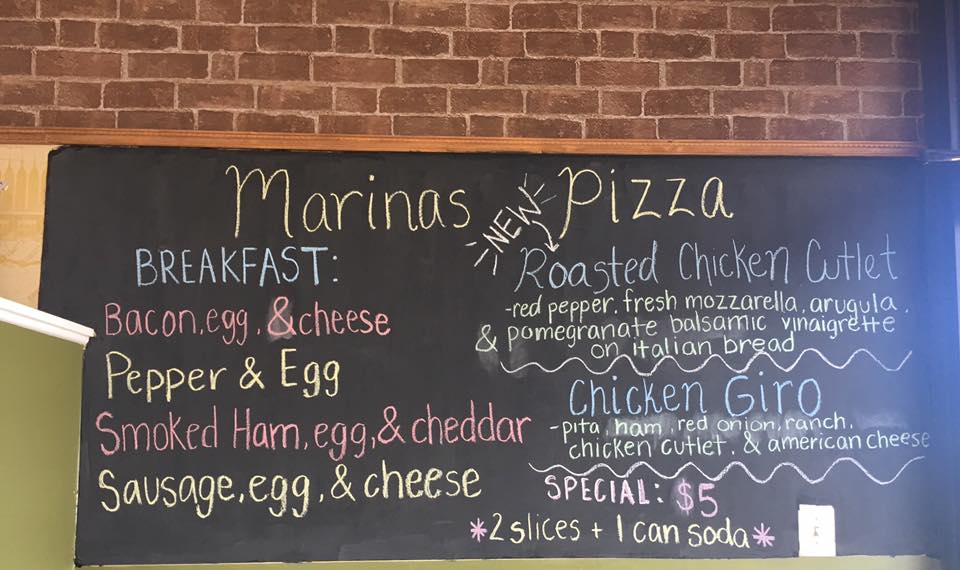 Marinas Pizza
BREAKFAST:
Bacon, egg, & cheese
Pepper & Egg
Smoked Ham, egg, & cheddar
Sausage, egg, & cheese
NEW
Roasted Chicken Cutlet
-red pepper, fresh mozzarella, arugula,
& pomegranate balsamic vinaigrette
on italian bread
Chicken Giro
-pita, ham, red onion, ranch,
chicken cutlet, & american cheese
SPECIAL: $5
*2 slices + 1 can soda*